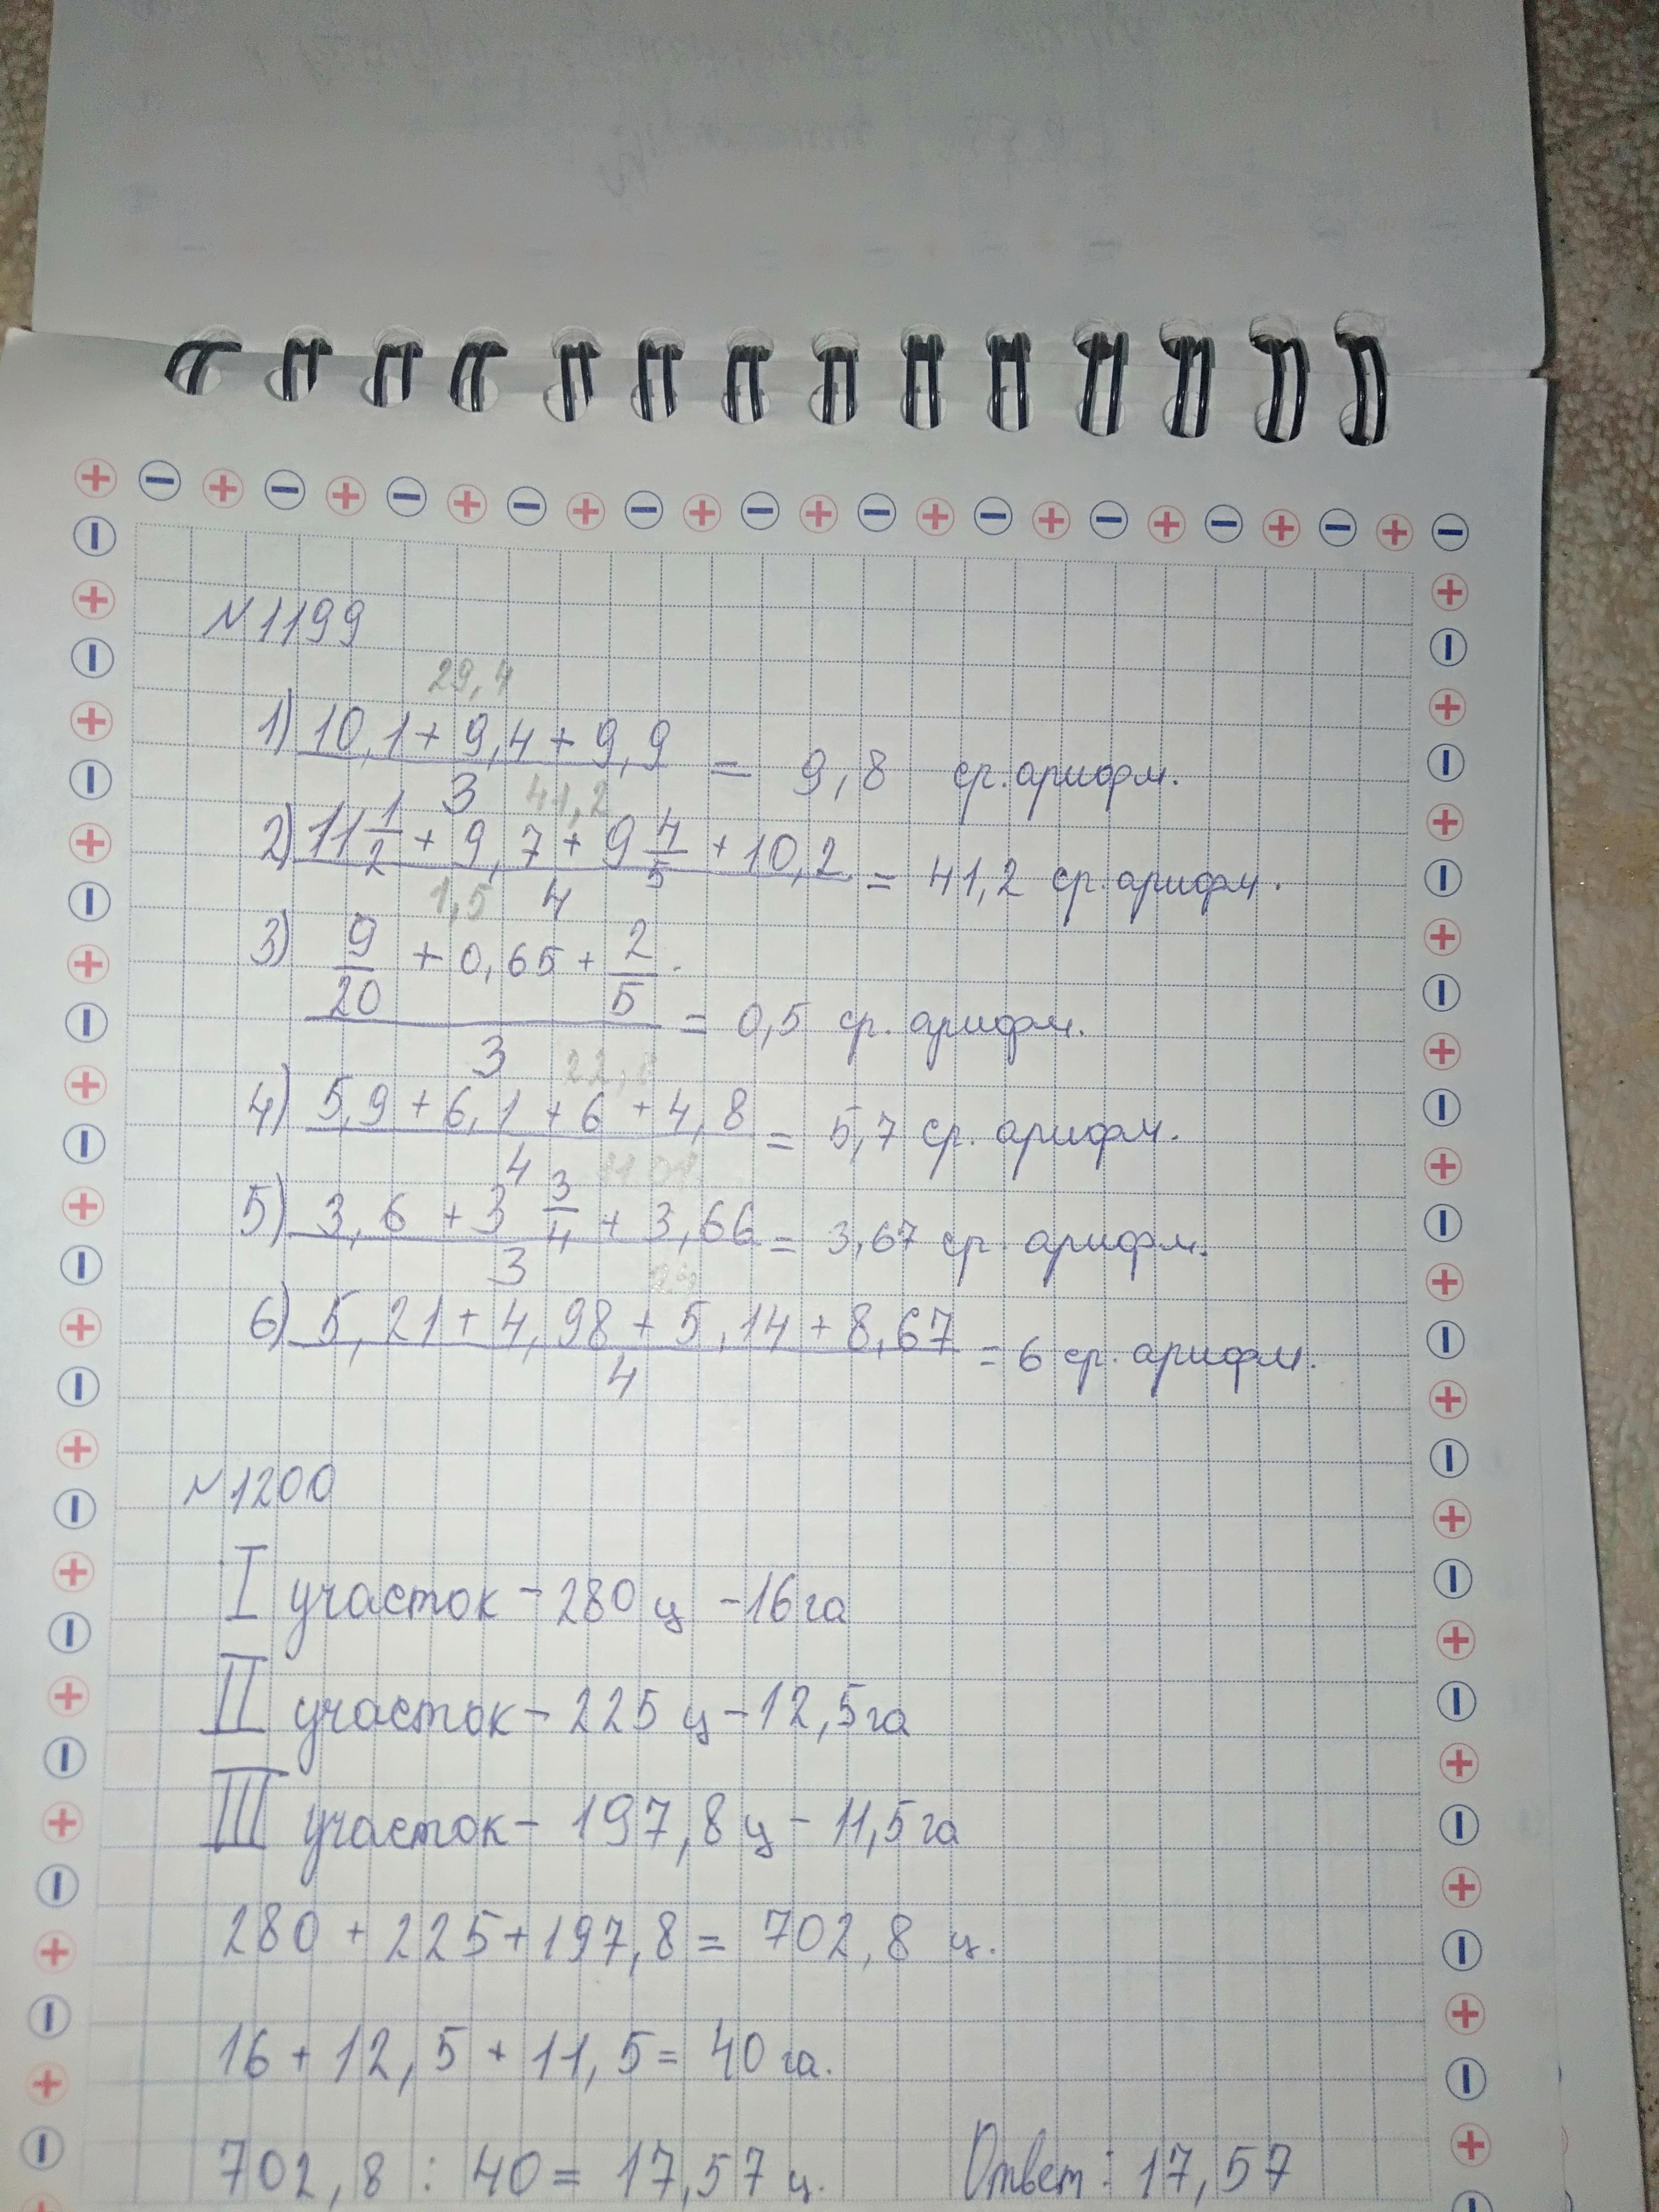 N1199
29,4
1) (10,1 + 9,4 + 9,9)/3 = 9,8 ср. арифм.
41,2
2) (11 1/2 + 9,7 + 9 4/5 + 10,2)/4 = 41,2 ср. арифм.
1,5
3) (9/20 + 0,65 + 2/5)/3 = 0,5 ср. арифм.
22,8
4) (5,9 + 6,1 + 6 + 4,8)/4 = 5,7 ср. арифм.
5) (3,6 + 3 3/4 + 3,66)/3 = 3,67 ср. арифм.
6) (5,21 + 4,98 + 5,14 + 8,67)/4 = 6 ср. арифм.
N1200
I участок - 280 ц - 16 га
II участок - 225 ц - 12,5 га
III участок - 197,8 ц - 11,5 га
280 + 225 + 197,8 = 702,8 ц.
16 + 12,5 + 11,5 = 40 га.
702,8 : 40 = 17,57 ц. Ответ: 17,57